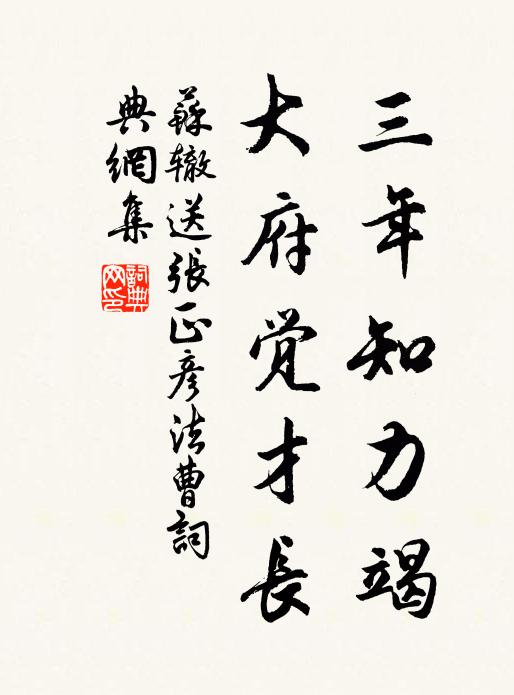 三年知力竭
大府觉才长
蘇辙送張正彦法曹詞
典網集
詞典网印